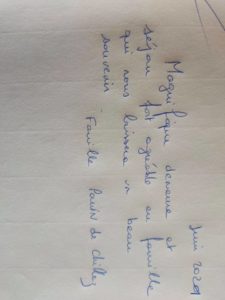 Juin 2020
Magnifique demeure et
séjour fort agréable en famille
qui nous laissera un beau
souvenir
Famille